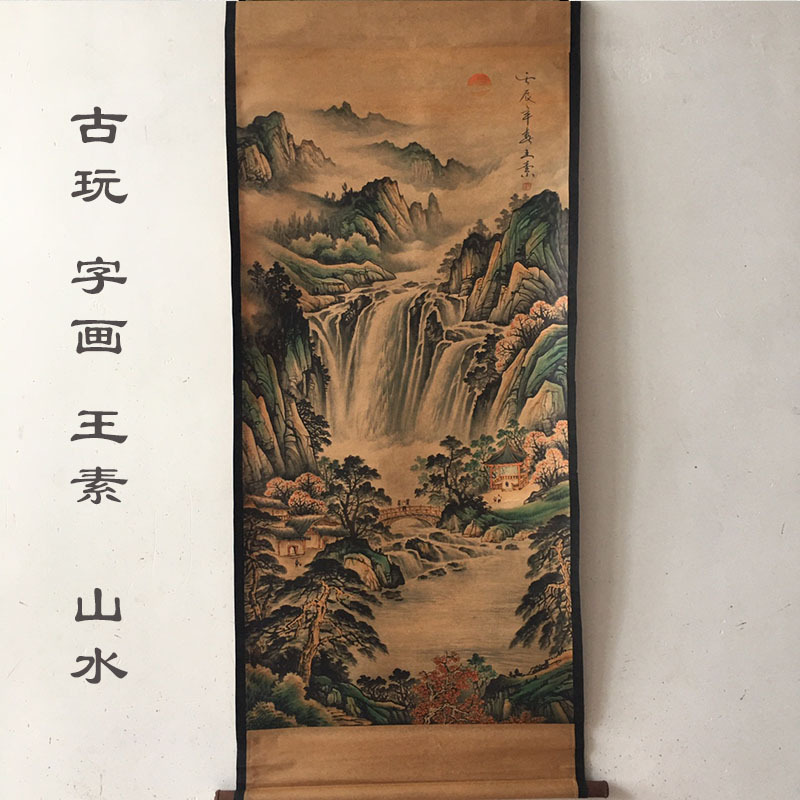 古玩 字画 王素 山水
壬辰年春王素